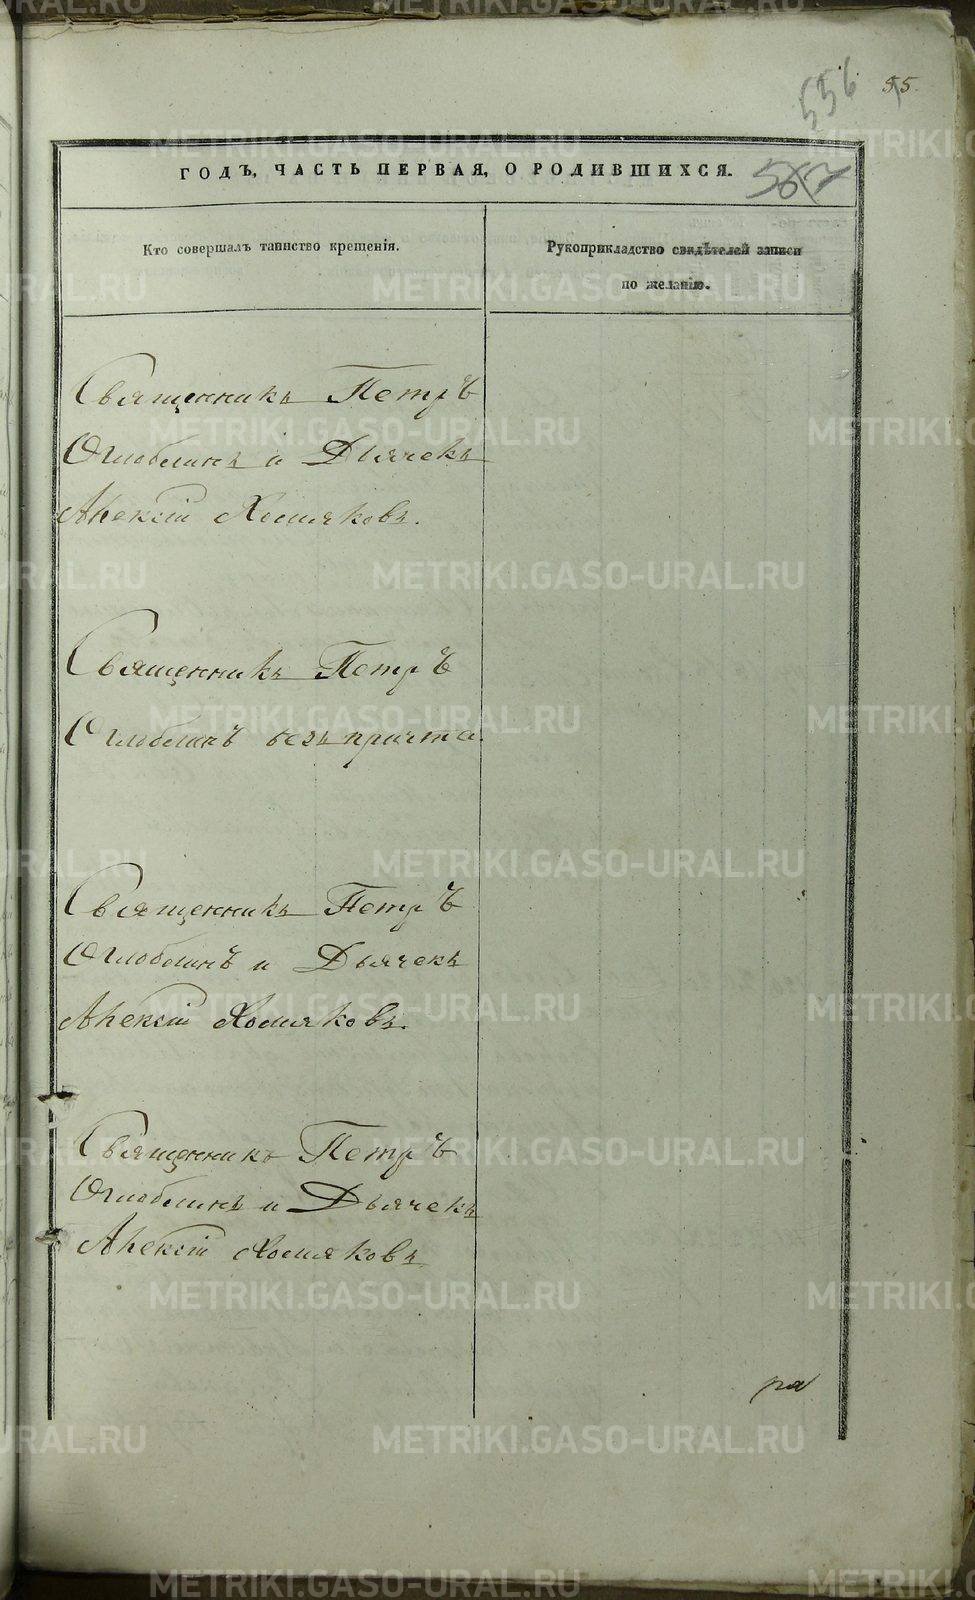 556
55.
ГОДЪ, ЧАСТЬ ПЕРВАЯ, О РОДИВШИХСЯ.
Кто совершалъ таинство крещенія.
Рукоприкладство свидѣтелей записи
по желанію.
Священникъ Петръ
Оглоблинъ и Дьячекъ
Алексій Хомяковъ.
Священникъ Петръ
Оглоблинъ безъ причта.
Священникъ Петръ
Оглоблинъ и Дьячекъ
Алексій Хомяковъ.
Священникъ Петръ
Оглоблинъ и Дьячекъ
Алексій Хомяковъ
METRIKI.GASO-URAL.RU